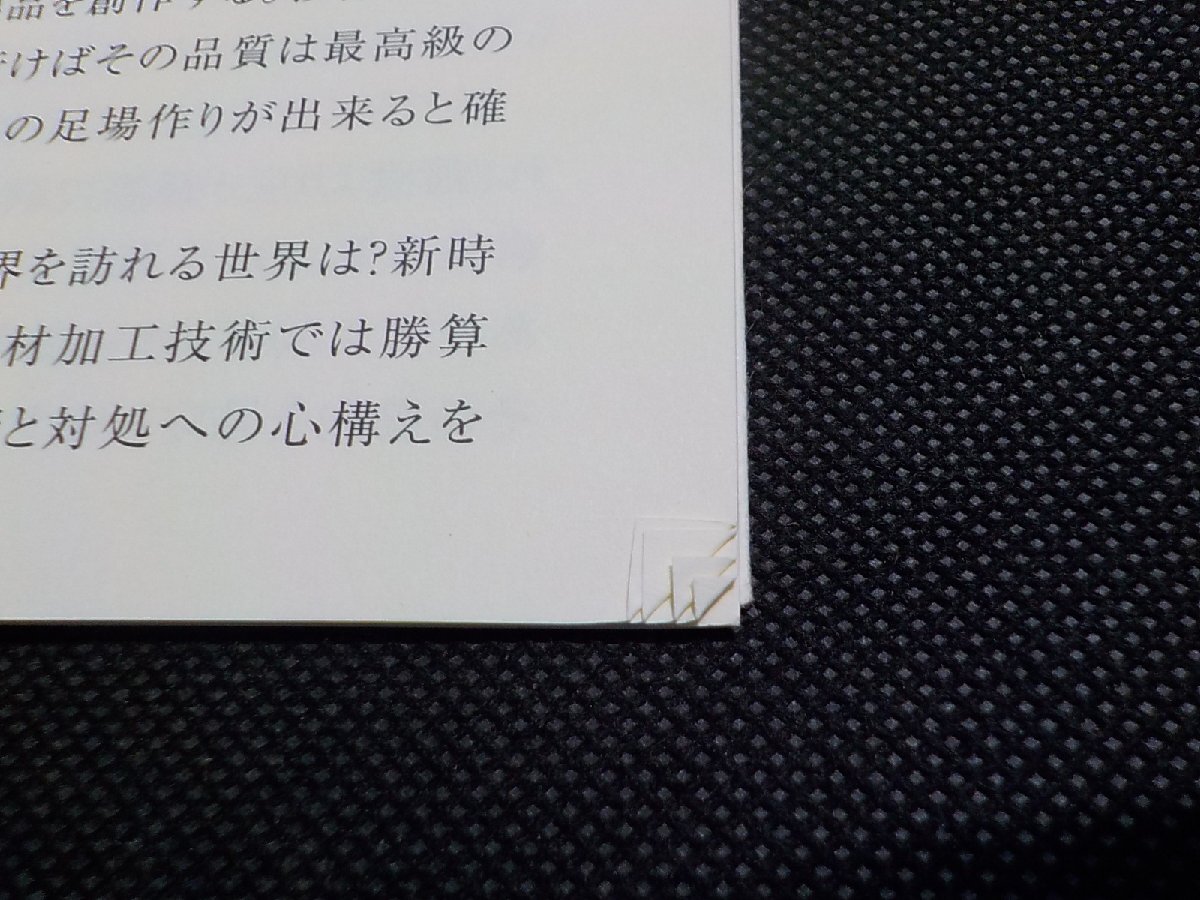 品を創作する。
けばその品質は最高級の
の足場作りが出来ると確
界を訪れる世界は?新時
材加工技術では勝算
と対処への心構えを